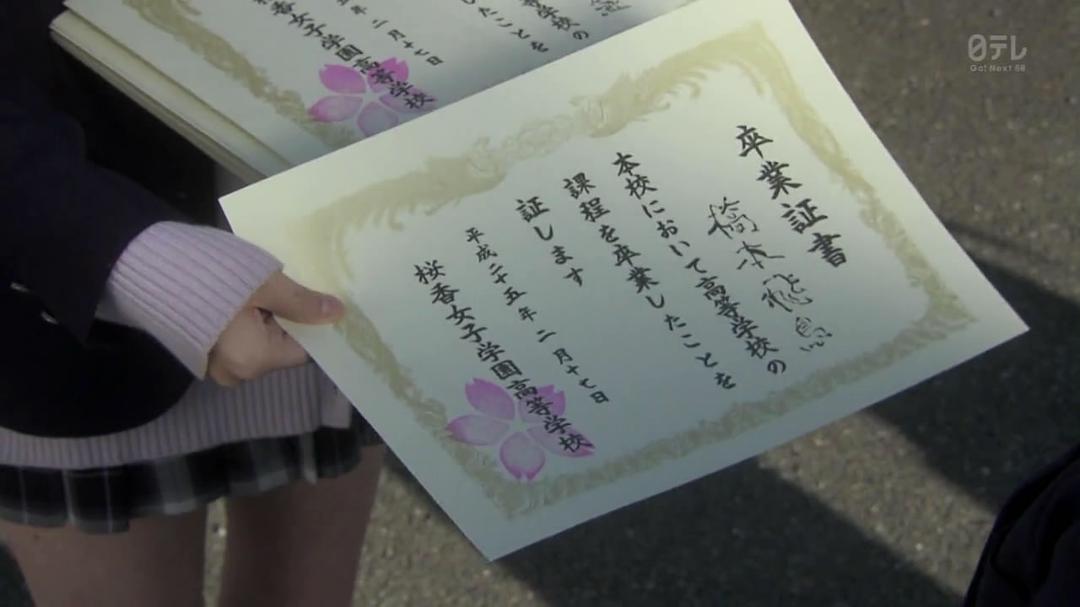 卒業証書
橋本飛鳥
本校において高等学校の
課程を卒業したことを
証します
平成二十五年二月十七日
桜香女子学園高等学校
学校の
したことを
年二月十七日
桜香女子学園高等学校
日テレ
Go! Next 60